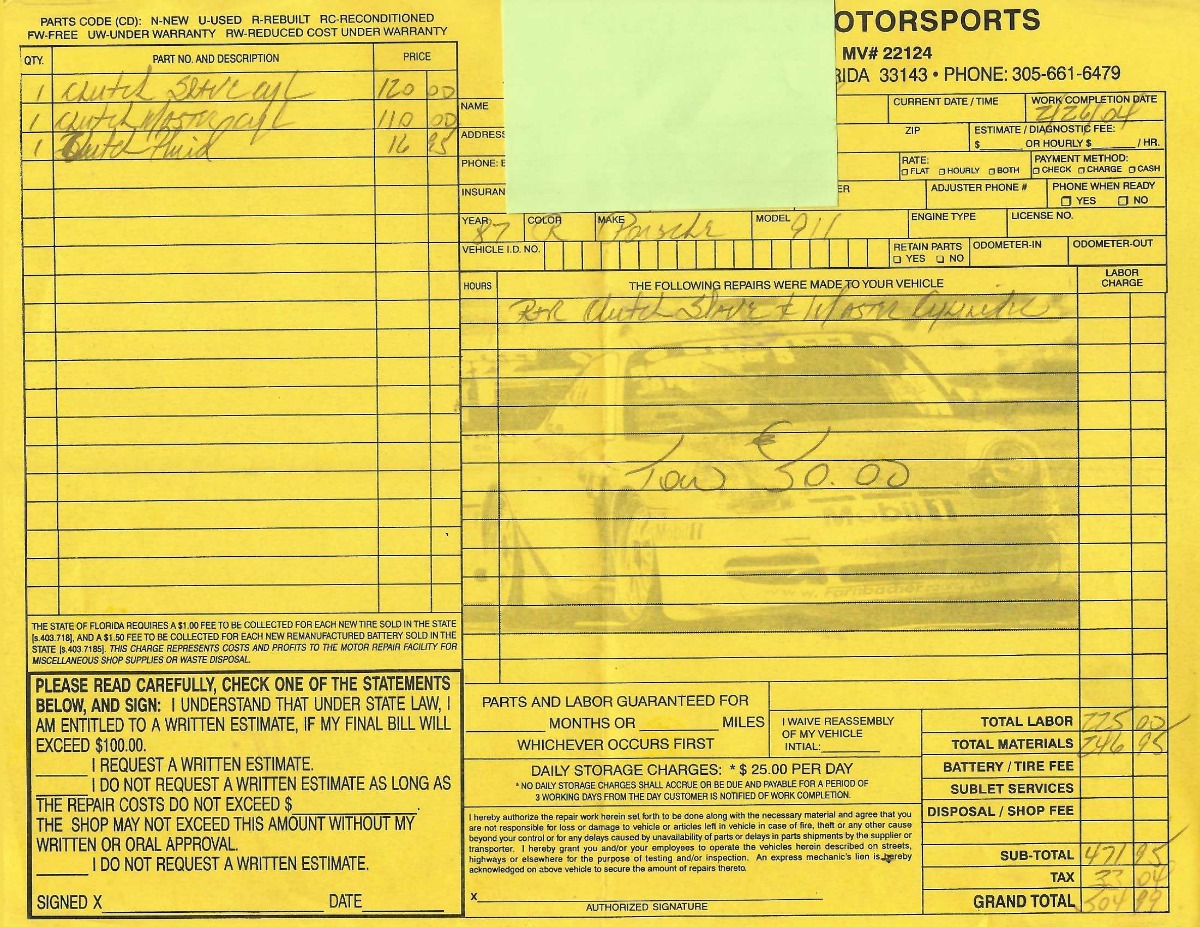 PARTS CODE (CD): N-NEW U-USED R-REBUILT RC-RECONDITIONED
FW-FREE UW-UNDER WARRANTY RW-REDUCED COST UNDER WARRANTY
QTY. PART NO. AND DESCRIPTION PRICE
1 Clutch Slave cyl 120 00
1 Clutch Master cyl 110 00
1 Clutch Fluid 16 95
OTORSPORTS
MV# 22124
RIDA 33143 • PHONE: 305-661-6479
NAME CURRENT DATE / TIME WORK COMPLETION DATE
2/26/04
ADDRESS ZIP ESTIMATE / DIAGNOSTIC FEE:
$ OR HOURLY $ / HR.
PHONE: RATE: PAYMENT METHOD:
☐ FLAT ☐ HOURLY ☐ BOTH ☐ CHECK ☐ CHARGE ☐ CASH
INSURAN ER ADJUSTER PHONE # PHONE WHEN READY
☐ YES ☐ NO
YEAR COLOR MAKE MODEL ENGINE TYPE LICENSE NO.
87 Porsche 911
VEHICLE I.D. NO. RETAIN PARTS ODOMETER-IN ODOMETER-OUT
☐ YES ☐ NO
HOURS THE FOLLOWING REPAIRS WERE MADE TO YOUR VEHICLE LABOR CHARGE
R+R Clutch Slave & Master Cylinder
Tow 50.00
THE STATE OF FLORIDA REQUIRES A $1.00 FEE TO BE COLLECTED FOR EACH NEW TIRE SOLD IN THE STATE
[s.403.718], AND A $1.50 FEE TO BE COLLECTED FOR EACH NEW REMANUFACTURED BATTERY SOLD IN THE
STATE [s.403.7185]. THIS CHARGE REPRESENTS COSTS AND PROFITS TO THE MOTOR REPAIR FACILITY FOR
MISCELLANEOUS SHOP SUPPLIES OR WASTE DISPOSAL.
PLEASE READ CAREFULLY, CHECK ONE OF THE STATEMENTS
BELOW, AND SIGN: I UNDERSTAND THAT UNDER STATE LAW, I
AM ENTITLED TO A WRITTEN ESTIMATE, IF MY FINAL BILL WILL
EXCEED $100.00.
I REQUEST A WRITTEN ESTIMATE.
I DO NOT REQUEST A WRITTEN ESTIMATE AS LONG AS
THE REPAIR COSTS DO NOT EXCEED $ .
THE SHOP MAY NOT EXCEED THIS AMOUNT WITHOUT MY
WRITTEN OR ORAL APPROVAL.
I DO NOT REQUEST A WRITTEN ESTIMATE.
SIGNED X DATE
PARTS AND LABOR GUARANTEED FOR
MONTHS OR MILES
WHICHEVER OCCURS FIRST
I WAIVE REASSEMBLY
OF MY VEHICLE
INTIAL:
DAILY STORAGE CHARGES: * $ 25.00 PER DAY
* NO DAILY STORAGE CHARGES SHALL ACCRUE OR BE DUE AND PAYABLE FOR A PERIOD OF
3 WORKING DAYS FROM THE DAY CUSTOMER IS NOTIFIED OF WORK COMPLETION.
I hereby authorize the repair work herein set forth to be done along with the necessary material and agree that you
are not responsible for loss or damage to vehicle or articles left in vehicle in case of fire, theft or any other cause
beyond your control or for any delays caused by unavailability of parts or delays in parts shipments by the supplier or
transporter. I hereby grant you and/or your employees to operate the vehicles herein described on streets,
highways or elsewhere for the purpose of testing and/or inspection. An express mechanic's lien is hereby
acknowledged on above vehicle to secure the amount of repairs thereto.
X
AUTHORIZED SIGNATURE
TOTAL LABOR 225 00
TOTAL MATERIALS 246 95
BATTERY / TIRE FEE
SUBLET SERVICES
DISPOSAL / SHOP FEE
SUB-TOTAL 471 95
TAX 33 04
GRAND TOTAL 504 99